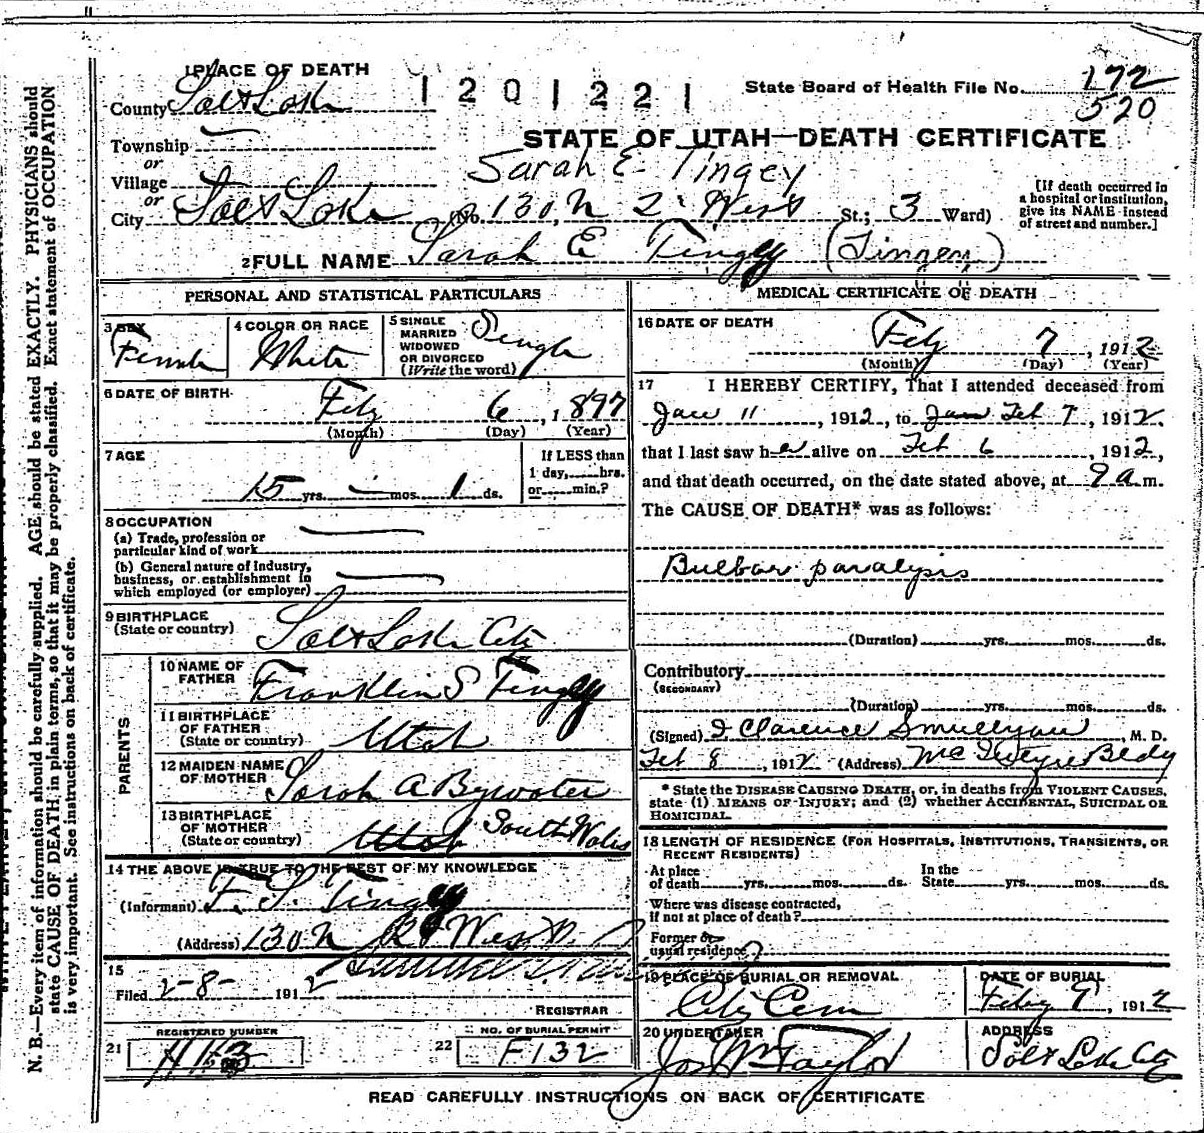 1 PLACE OF DEATH
1201221
State Board of Health File No. 172
520
County Salt Lake
STATE OF UTAH—DEATH CERTIFICATE
Township
or
Village
Sarah E. Tingey
or
City Salt Lake No. 130 N 2 West St.; 3 Ward)
[If death occurred in
a hospital or institution,
give its NAME instead
of street and number.]
2 FULL NAME Sarah E Tingey (Tingey)
PERSONAL AND STATISTICAL PARTICULARS
3 SEX
Female
4 COLOR OR RACE
White
5 SINGLE
MARRIED
WIDOWED
OR DIVORCED
(Write the word)
Single
6 DATE OF BIRTH
Feby 6, 1897
(Month) (Day) (Year)
7 AGE
15 yrs. — mos. 1 ds.
If LESS than
1 day, hrs.
or min.?
8 OCCUPATION
(a) Trade, profession or
particular kind of work
(b) General nature of industry,
business, or establishment in
which employed (or employer)
9 BIRTHPLACE
(State or country)
Salt Lake City
PARENTS
10 NAME OF
FATHER
Franklin S Tingey
11 BIRTHPLACE
OF FATHER
(State or country)
Utah
12 MAIDEN NAME
OF MOTHER
Sarah A Bywater
13 BIRTHPLACE
OF MOTHER
(State or country)
Utah South Wales
14 THE ABOVE IS TRUE TO THE BEST OF MY KNOWLEDGE
(Informant) F. S. Tingey
(Address) 130 N West
15
Filed 2-8- 1912
REGISTRAR
REGISTERED NUMBER
21
NO. OF BURIAL PERMIT
22 F132
MEDICAL CERTIFICATE OF DEATH
16 DATE OF DEATH
Feby 7, 1912
(Month) (Day) (Year)
17 I HEREBY CERTIFY, That I attended deceased from
Jan 11, 1912, to Jan Feb 7, 1912.
that I last saw her alive on Feb 6, 1912,
and that death occurred, on the date stated above, at 9 a m.
The CAUSE OF DEATH* was as follows:
Bulbar paralysis
(Duration) yrs. mos. ds.
Contributory
(SECONDARY)
(Duration) yrs. mos. ds.
(Signed) Clarence M. D.
Feb 8, 1912 (Address) McIntyre Bldg
* State the DISEASE CAUSING DEATH, or, in deaths from VIOLENT CAUSES,
state (1) MEANS OF INJURY; and (2) whether ACCIDENTAL, SUICIDAL OR
HOMICIDAL.
18 LENGTH OF RESIDENCE (FOR HOSPITALS, INSTITUTIONS, TRANSIENTS, OR
RECENT RESIDENTS)
At place
of death yrs. mos. ds.
In the
State yrs. mos. ds.
Where was disease contracted,
if not at place of death?
Former or
usual residence
19 PLACE OF BURIAL OR REMOVAL
City Cem
DATE OF BURIAL
Feby 9, 1912
20 UNDERTAKER
Jos Wm Taylor
ADDRESS
Salt Lake City
READ CAREFULLY INSTRUCTIONS ON BACK OF CERTIFICATE
N. B.—Every item of information should be carefully supplied. AGE should be stated EXACTLY. PHYSICIANS should
state CAUSE OF DEATH, in plain terms, so that it may be properly classified. Exact statement of OCCUPATION
is very important. See instructions on back of certificate.